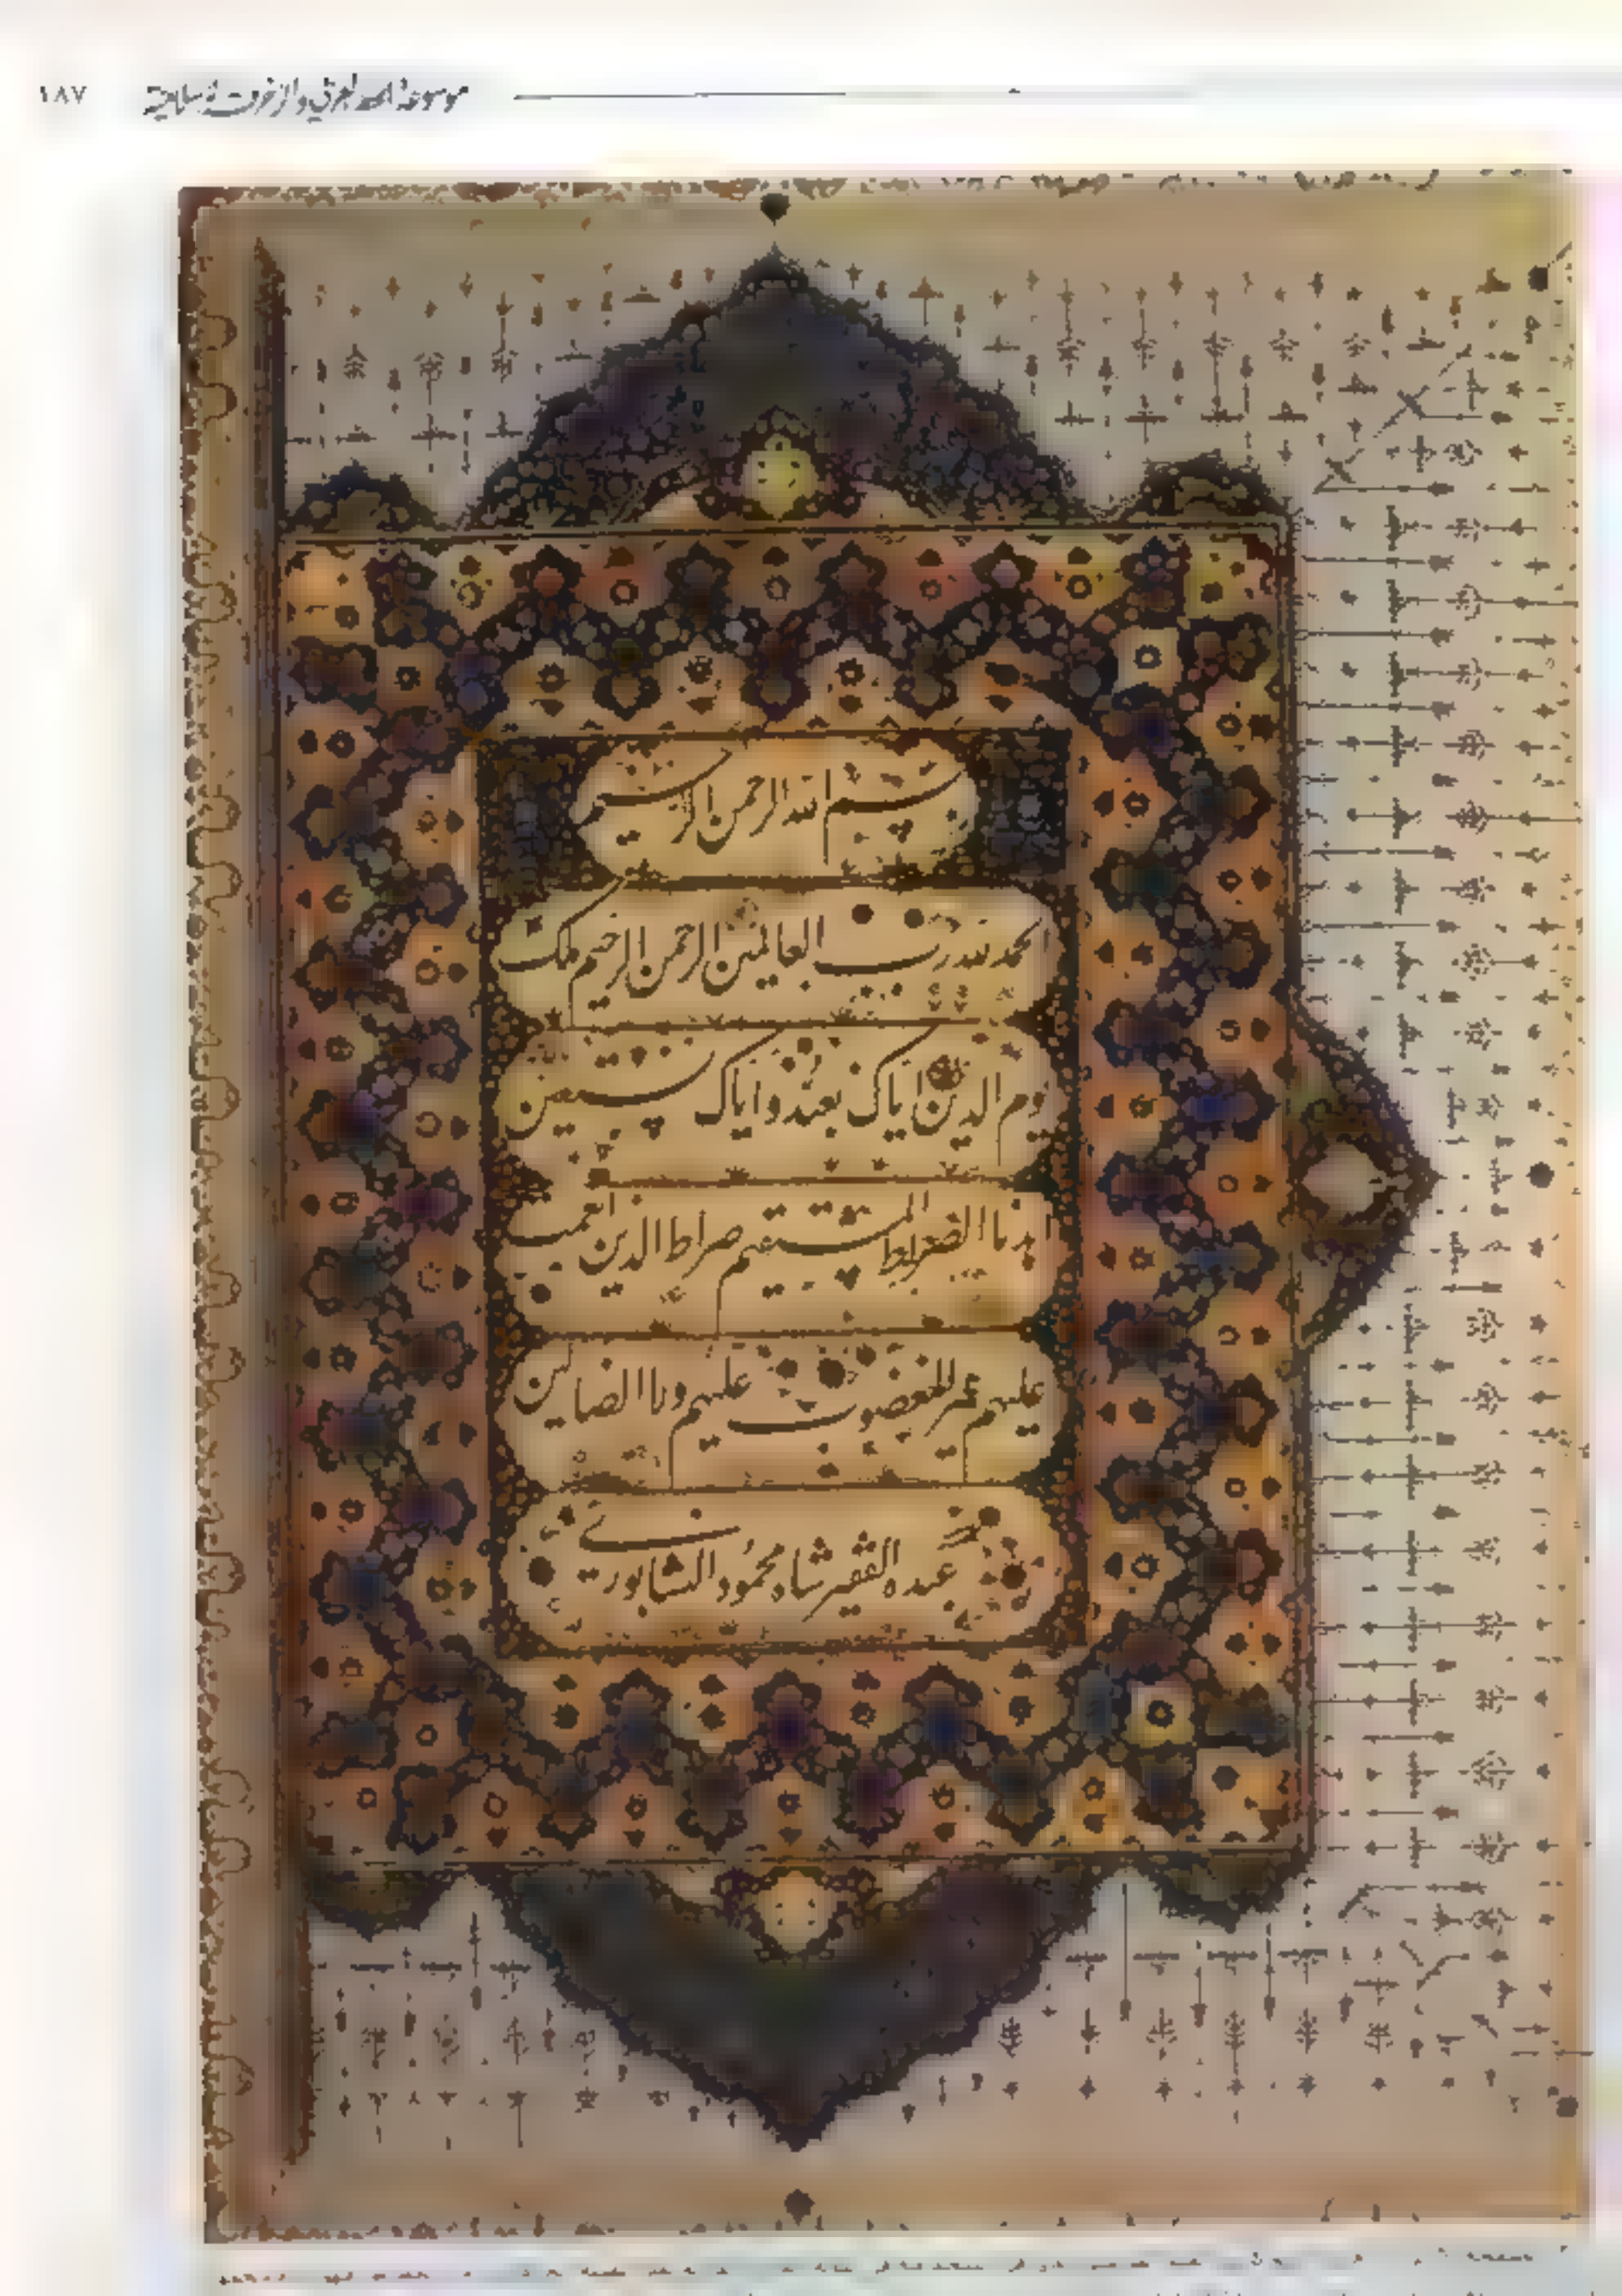 موسوعة الخط العربي والزخرفة الإسلامية ١٨٧
بسم الله الرحمن الرحيم
الحمد لله رب العالمين الرحمن الرحيم ملك
يوم الدين اياك نعبد واياك نستعين
اهدنا الصراط المستقيم صراط الذين انعمت
عليهم غير المغضوب عليهم ولا الضالين
عبده الفقير شاه محمود النيشابوري